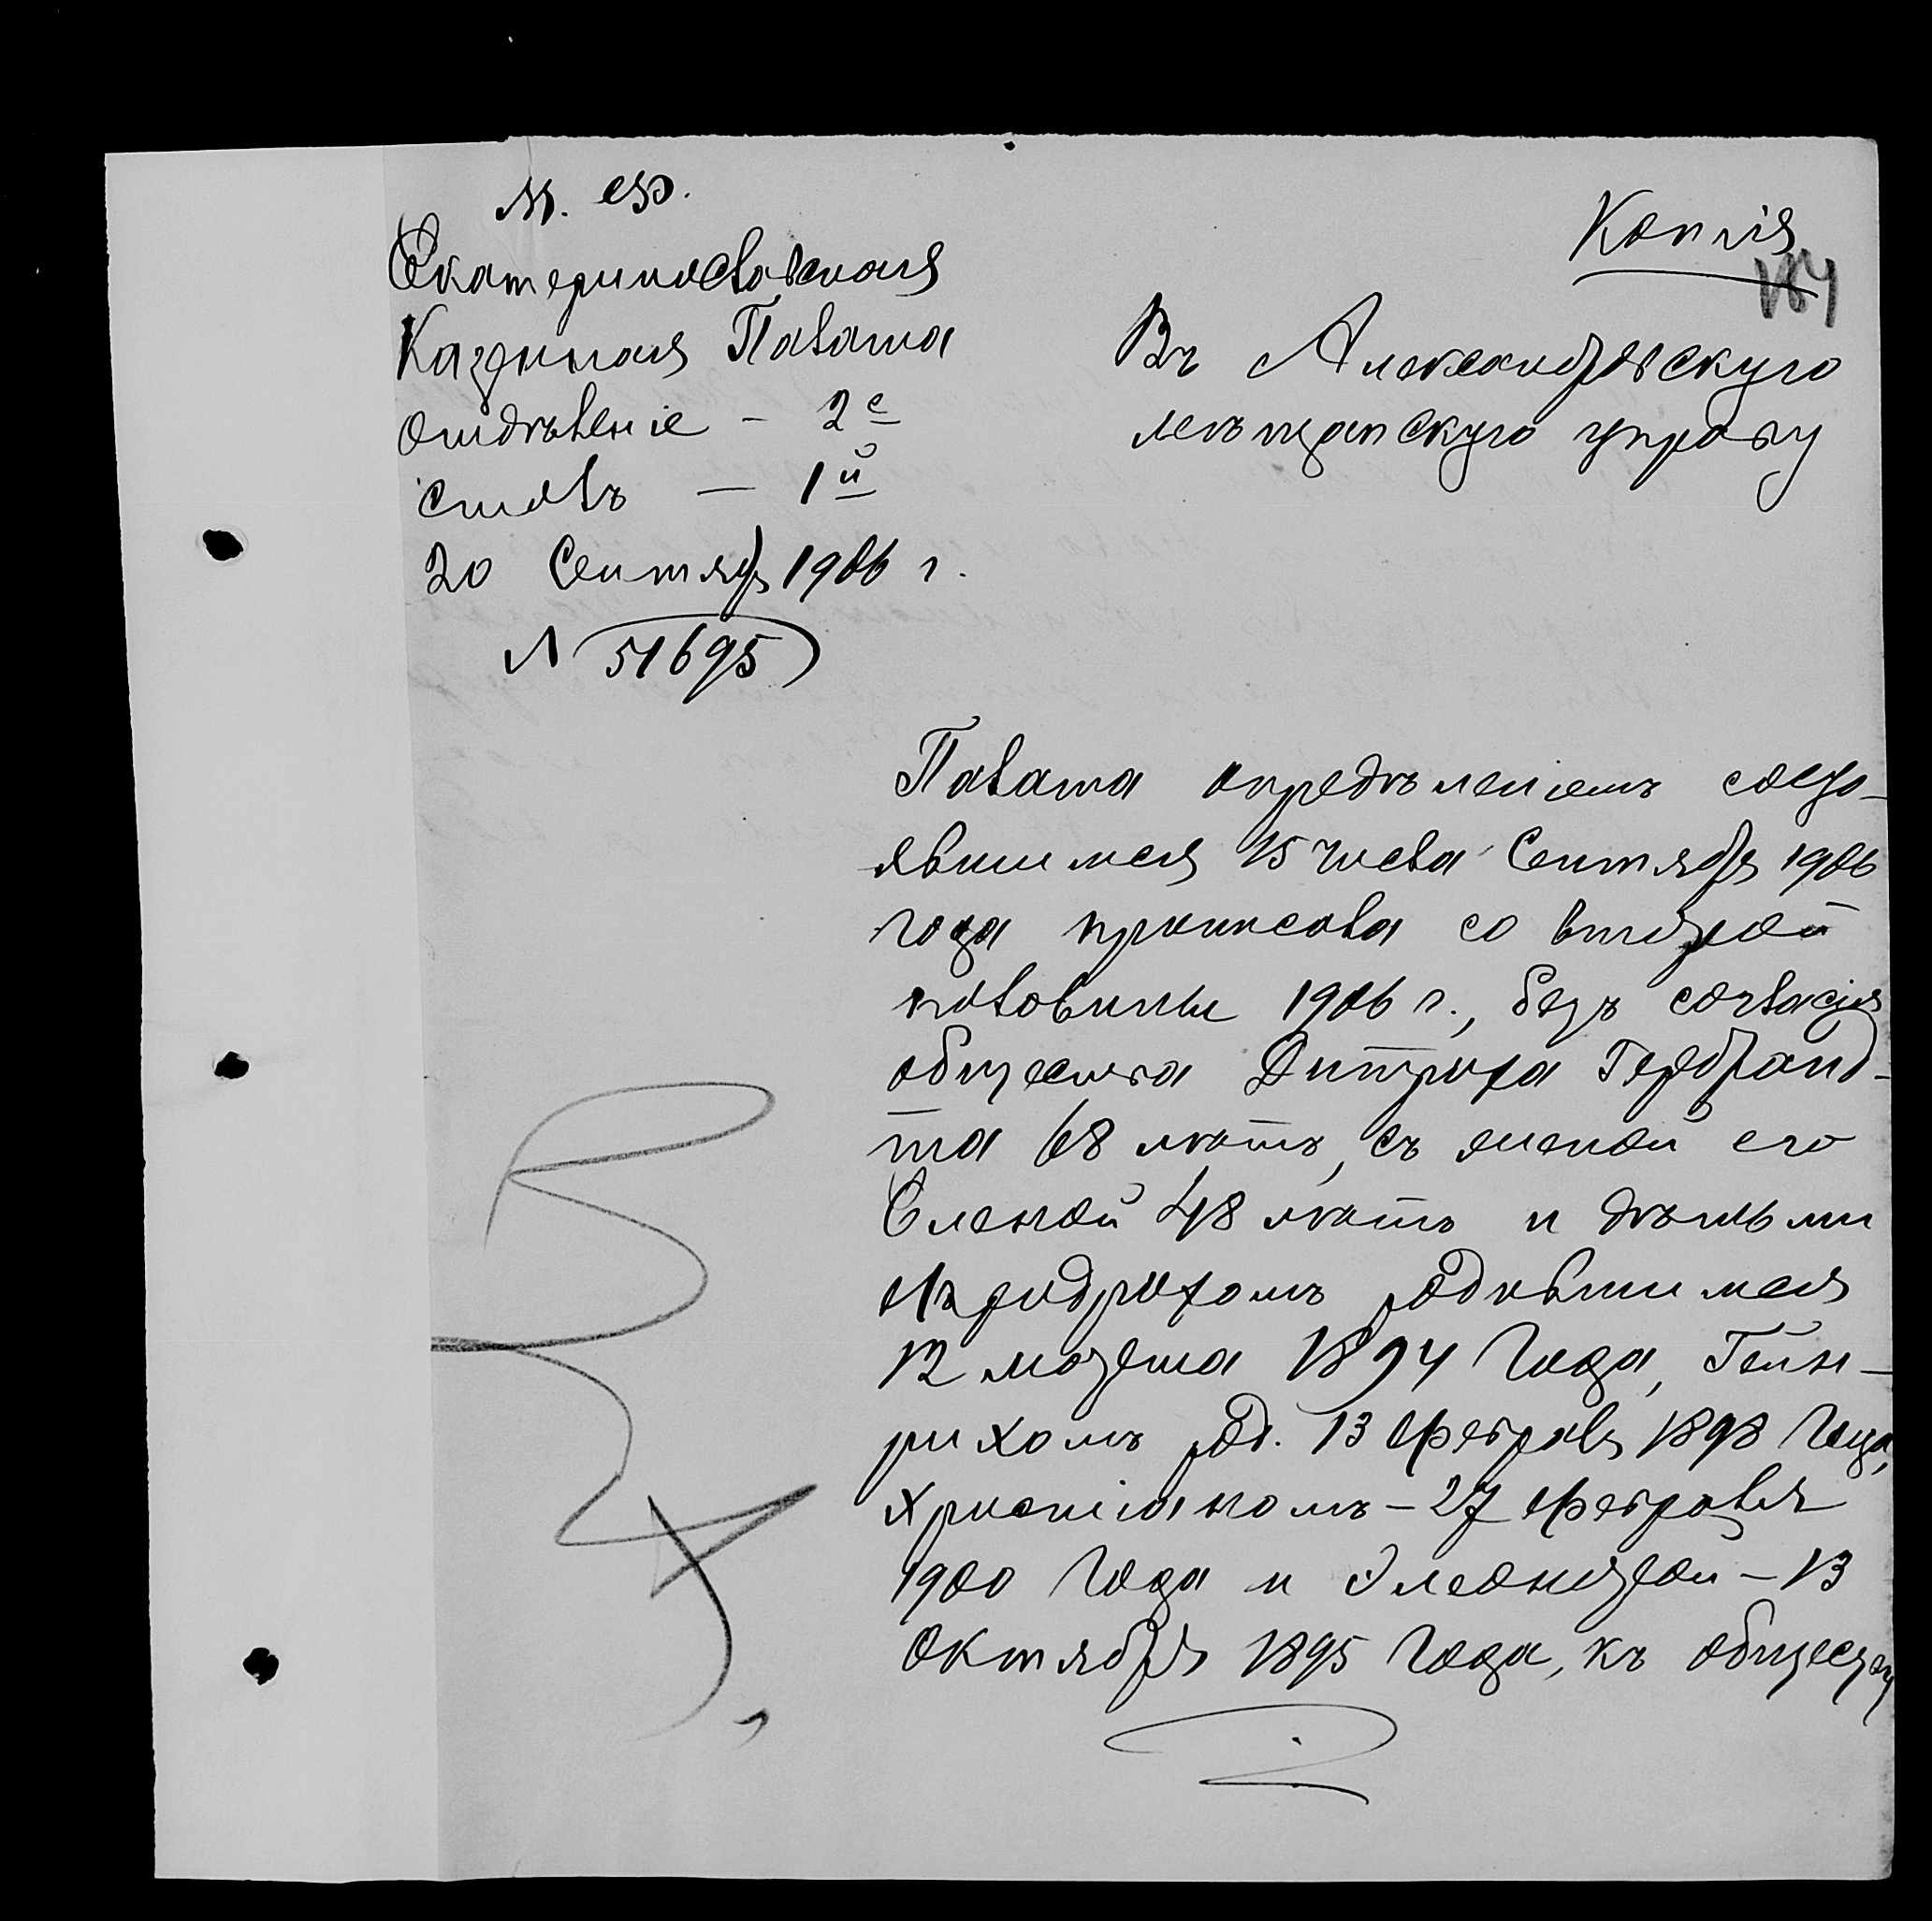 М. Ф.
Екатеринославская
Казенная Палата
Отдѣленіе – 2е
Столъ – 1й
20 Сентября 1906 г.
№ 51695
Копія
184
Въ Александровскую
мѣщанскую управу
Палата опредѣленіемъ состо-
явшимся 15 числа Сентября 1906
года приписала со второй
половины 1906 г., безъ согласія
общества Дитриха Гербранд-
та 68 лѣтъ, съ женой его
Еленой 48 лѣтъ и дѣтьми
Фридрихомъ родившимся
12 марта 1894 года, Гейн-
рихомъ род. 13 Февраля 1898 года,
Христіаномъ – 27 Февраля
1900 года и Элеонорой – 13
Октября 1895 года, къ обществу